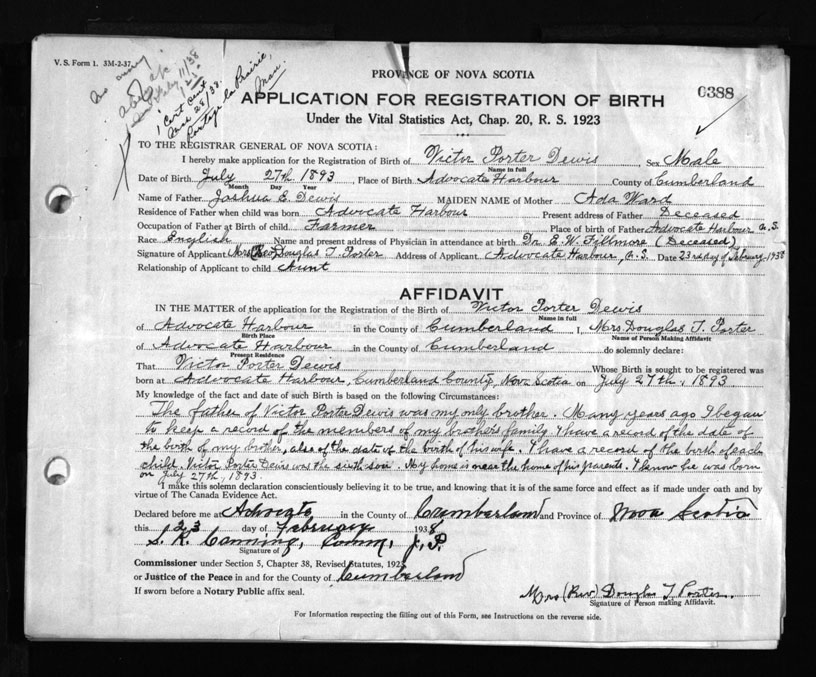 V. S. Form 1. 3M-2-37.
1 Cert. Sent
Portage la Prairie,
Man.
PROVINCE OF NOVA SCOTIA
0388
APPLICATION FOR REGISTRATION OF BIRTH
Under the Vital Statistics Act, Chap. 20, R. S. 1923
TO THE REGISTRAR GENERAL OF NOVA SCOTIA:
I hereby make application for the Registration of Birth of Victor Porter Dewis Sex Male
Name in full
Date of Birth July 27th 1893 Place of Birth Advocate Harbour County of Cumberland
Month Day Year
Name of Father Joshua E. Dewis MAIDEN NAME of Mother Ada Ward
Residence of Father when child was born Advocate Harbour Present address of Father Deceased
Occupation of Father at Birth of child Farmer Place of Birth of Father Advocate Harbour N.S.
Race English Name and present address of Physician in attendance at birth Dr. E. W. Fillmore (Deceased)
Signature of Applicant Mrs (Rev) Douglas T. Porter Address of Applicant Advocate Harbour, N.S. Date 23rd day of February-1938
Relationship of Applicant to child Aunt
AFFIDAVIT
IN THE MATTER of the application for the Registration of the Birth of Victor Porter Dewis
Name in full
of Advocate Harbour in the County of Cumberland I, Mrs. Douglas T. Porter
Birth Place Name of Person Making Affidavit
of Advocate Harbour in the County of Cumberland do solemnly declare:
Present Residence
That Victor Porter Dewis Whose Birth is sought to be registered was
born at Advocate Harbour, Cumberland County, Nova Scotia on July 27th, 1893
My knowledge of the fact and date of such Birth is based on the following Circumstances:
The father of Victor Porter Dewis was my only brother. Many years ago I began
to keep a record of the members of my brothers family. I have a record of the date of
the birth of my brother, also of the date of the birth of his wife. I have a record of the birth of each
child. Victor Porter Dewis was the sixth son. My home is near the home of his parents. I know he was born
on July 27th, 1893.
I make this solemn declaration conscientiously believing it to be true, and knowing that it is of the same force and effect as if made under oath and by
virtue of The Canada Evidence Act.
Declared before me at Advocate in the County of Cumberland and Province of Nova Scotia
this 23 day of February 1938
S. R. Canning, Comm, J. P.
Signature of
Commissioner under Section 5, Chapter 38, Revised Statutes, 192
or Justice of the Peace in and for the County of Cumberland
If sworn before a Notary Public affix seal.
Mrs (Rev) Douglas T. Porter.
Signature of Person making Affidavit.
For Information respecting the filling out of this Form, see Instructions on the reverse side.